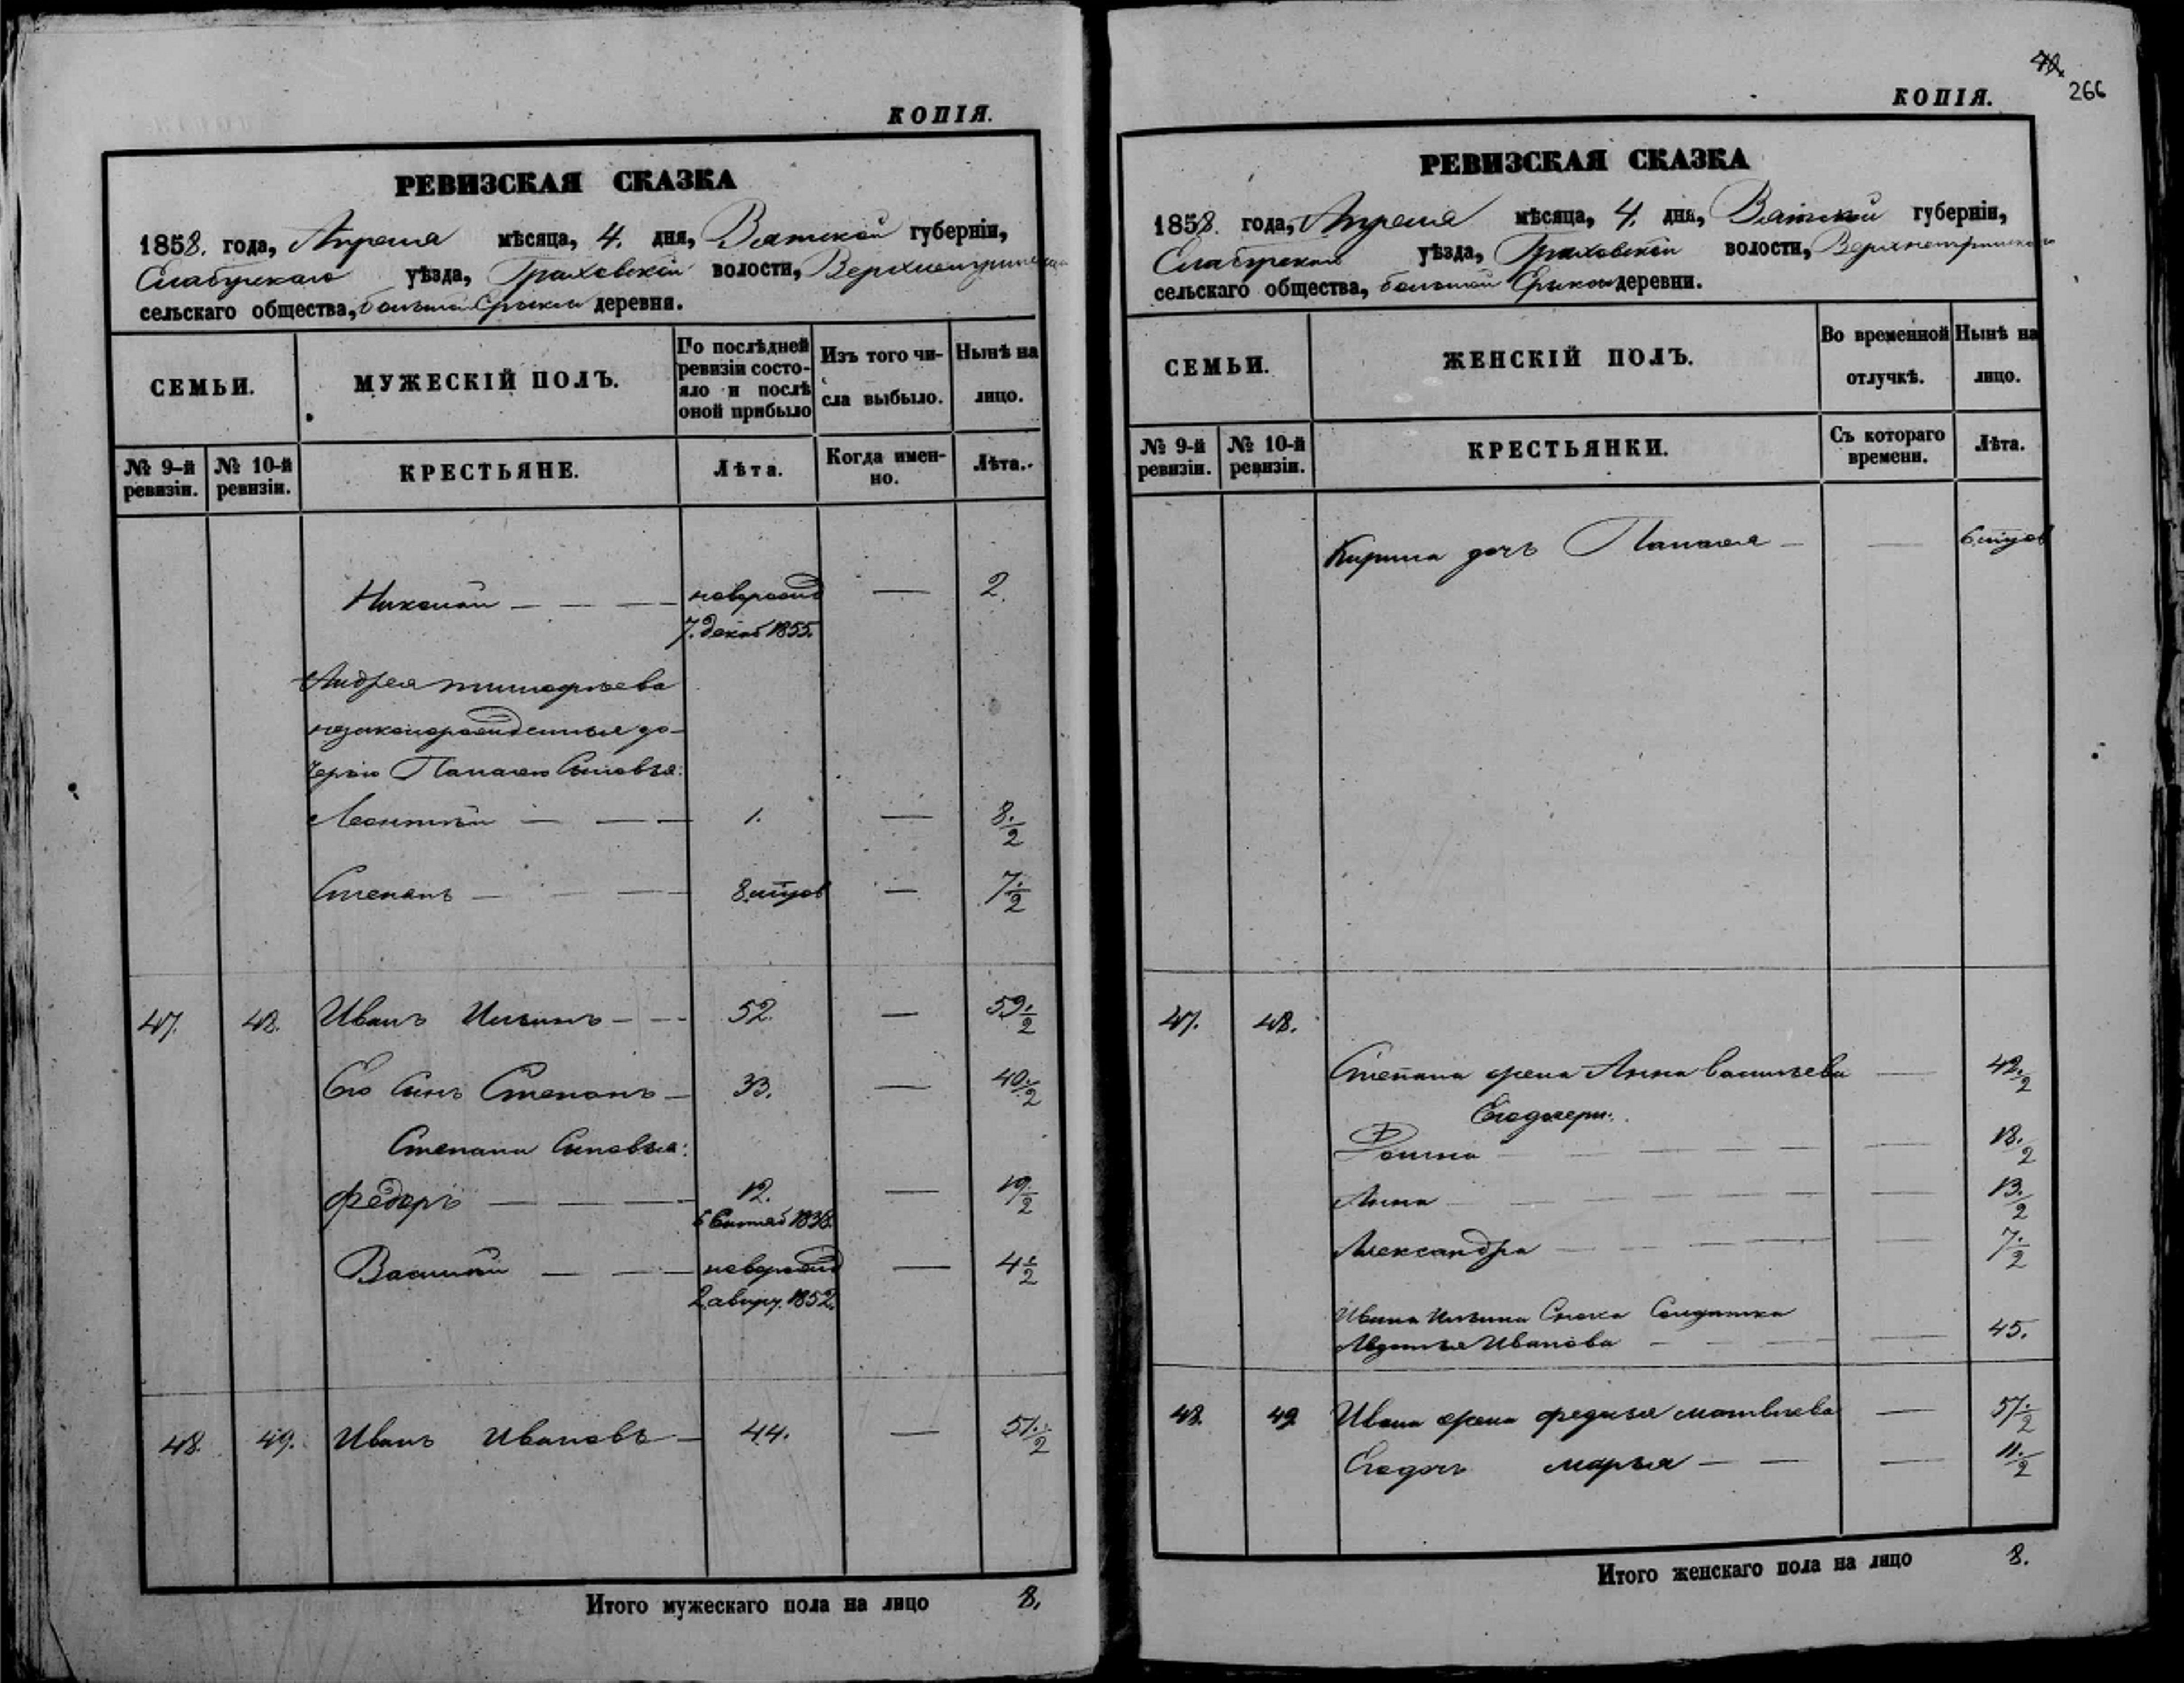 КОПІЯ.
РЕВИЗСКАЯ СКАЗКА
1858. года, Апреля мѣсяца, 4. дня, Вятской губерніи,
Елабужскаго уѣзда, Граховской волости,
сельскаго общества, большой Ерыксы деревня.
СЕМЬИ.
МУЖЕСКІЙ ПОЛЪ.
По послѣдней ревизіи состо-
яло и послѣ
оной прибыло
Изъ того чи-
сла выбыло.
Нынѣ на
лицо.
№ 9-й ревизіи.
№ 10-й ревизіи.
КРЕСТЬЯНЕ.
Лѣта.
Когда имен-
но.
Лѣта.
Николай — — — новорожд — 2.
7. декаб 1855.
Андрея тимофѣева
незаконорожденныя до-
черью Сыновья:
Леонтій — — — 1. — 8 1/2
Степанъ — — — 8 мцов — 7 1/2
47. 48. Иванъ Ильинъ — — 52. — 59 1/2
Его Сынъ Степанъ — 33. — 40 1/2
Степана Сыновья:
Федоръ — — — 12. — 19 1/2
Василій — — — новорожд — 4 1/2
1852.
48. 49. Иванъ Ивановъ — 44. — 51 1/2
Итого мужескаго пола на лицо 8.
42.
266
КОПІЯ.
РЕВИЗСКАЯ СКАЗКА
1858. года, Апреля мѣсяца, 4. дня, Вятской губерніи,
Елабужскаго уѣзда, Граховской волости,
сельскаго общества, большой Ерыксы деревни.
СЕМЬИ.
ЖЕНСКІЙ ПОЛЪ.
Во временной
отлучкѣ.
Нынѣ на
лицо.
№ 9-й ревизіи.
№ 10-й ревизіи.
КРЕСТЬЯНКИ.
Съ котораго
времени.
Лѣта.
дочь — — 6 мцов
47. 48.
Степана жена Анна васильева — 42 1/2
Его дочери:
— — — — 18 1/2
Анна — — — — 13 1/2
Александра — — — — 7 1/2
Ивана Ильина Сноха Солдатка
Авдотья Иванова — — — 45.
48. 49 Ивана жена федосья матвѣева — 57 1/2
Его дочь марья — — — 11 1/2
Итого женскаго пола на лицо 8.